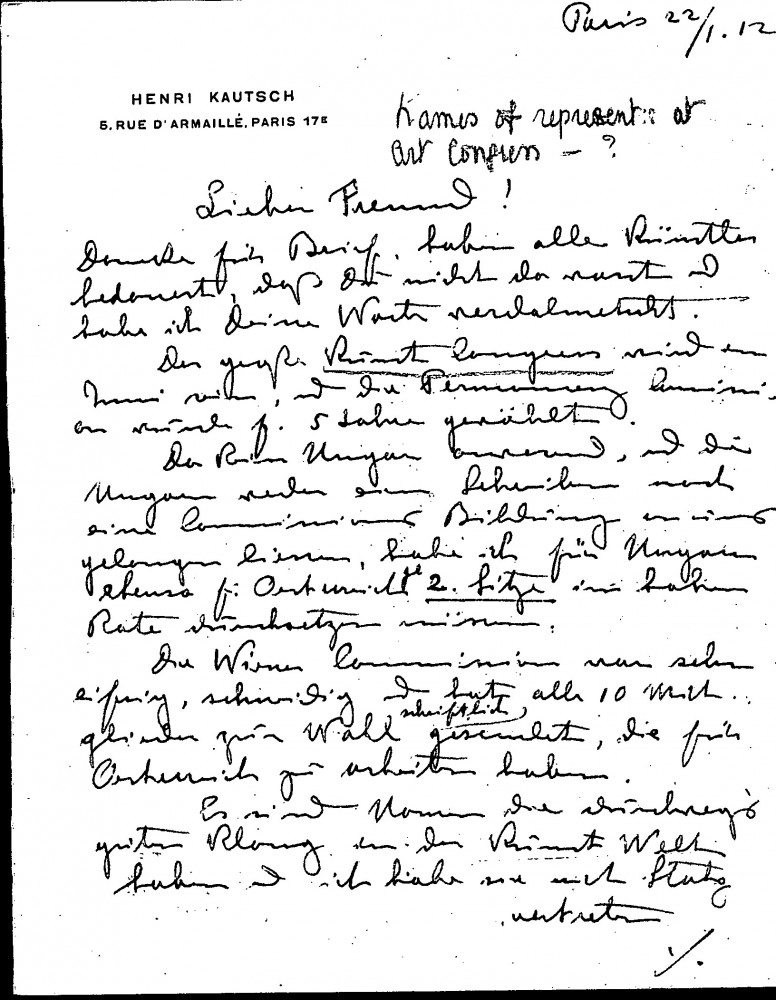 Paris 22/1.12
HENRI KAUTSCH
5, RUE D'ARMAILLÉ, PARIS 17E
Names of represent:: at
art Congress – ?
Lieber Freund!
Danke für Brief, haben alle Künstler
bedauert, daß Du nicht da warst u
habe ich Deine Worte verdolmetscht.
Der große Kunst Congress wird im
Juni sein, u die Permanenz Commissi-
on wurde f. 5 Jahre gewählt.
Da kein Ungar anwesend, u die
Ungarn weder ein Schreiben noch
eine Commissions Bildung an uns
gelangen liessen, habe ich für Ungarn
ebenso f. Oesterreich 2. Sitze im hohen
Rate durchsetzen müssen.
Die Wiener Commission war sehr
eifrig, schneidig u hat alle 10 Mit-
glieder zur Wahl schriftlich gesendet, die für
Oesterreich zu arbeiten haben.
Es sind Namen die durchwegs
guten Klang in der Kunst Welt
haben u ich habe sie mit Stolz
vertreten
./.